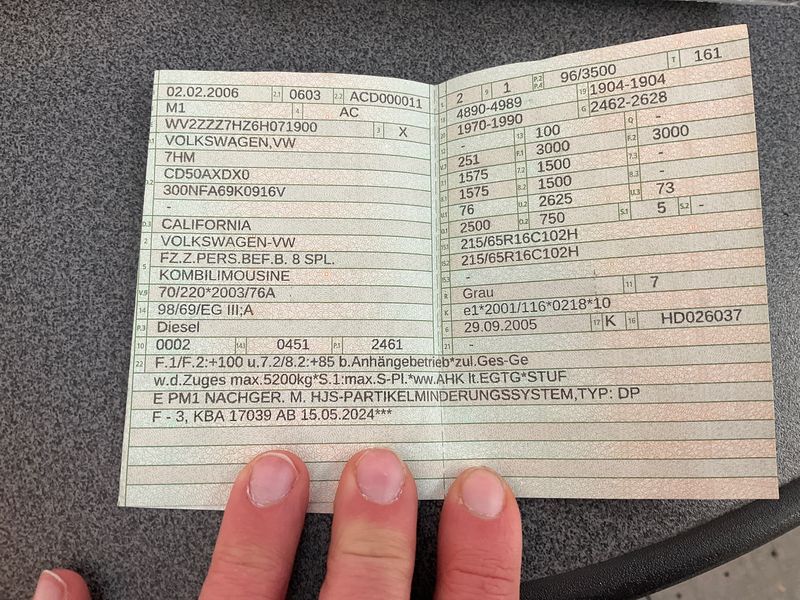 02.02.2006 2.1 0603 2.2 ACD000011
M1 4 AC
WV2ZZZ7HZ6H071900 3 X
VOLKSWAGEN,VW
7HM
CD50AXDX0
300NFA69K0916V
-
D.3 CALIFORNIA
2 VOLKSWAGEN-VW
5 FZ.Z.PERS.BEF.B. 8 SPL.
KOMBILIMOUSINE
V.9 70/220*2003/76A
14 98/69/EG III;A
P.3 Diesel
10 0002 14.1 0451 P.1 2461
L 2 9 1 P.2 P.4 96/3500 T 161
18 4890-4989 19 1904-1904
20 1970-1990 G 2462-2628
12 - 13 100 Q -
V.7 251 F.1 3000 F.2 3000
7.1 1575 7.2 1500 7.3 -
8.1 1575 8.2 1500 8.3 -
U.1 76 U.2 2625 U.3 73
O.1 2500 O.2 750 S.1 5 S.2 -
15.1 215/65R16C102H
15.2 215/65R16C102H
15.3 -
R Grau 11 7
K e1*2001/116*0218*10
6 29.09.2005 17 K 16 HD026037
21 -
22 F.1/F.2:+100 u.7.2/8.2:+85 b.Anhängebetrieb*zul.Ges-Ge
w.d.Zuges max.5200kg*S.1:max.S-Pl.*ww.AHK lt.EGTG*STUF
E PM1 NACHGER. M. HJS-PARTIKELMINDERUNGSSYSTEM,TYP: DP
F - 3, KBA 17039 AB 15.05.2024***